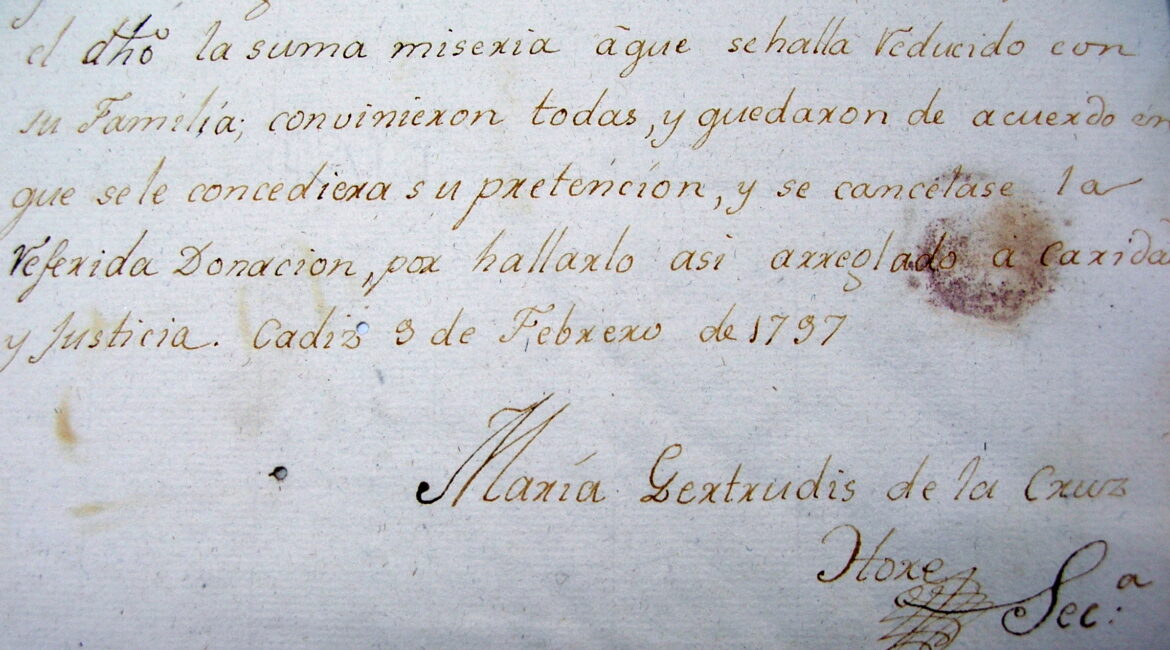 el dhô la suma miseria âque sehalla reducido con
su Familia; convinieron todas, y quedaron de acuerdo en
que sele concediera su pretencion, y se cancelase la
referida Donacion, por hallarlo asi arreglado à carida
y Justicia. Cadiz 9 de Febrero de 1797
María Gertrudis de la Cruz
Hore
Sec.ª